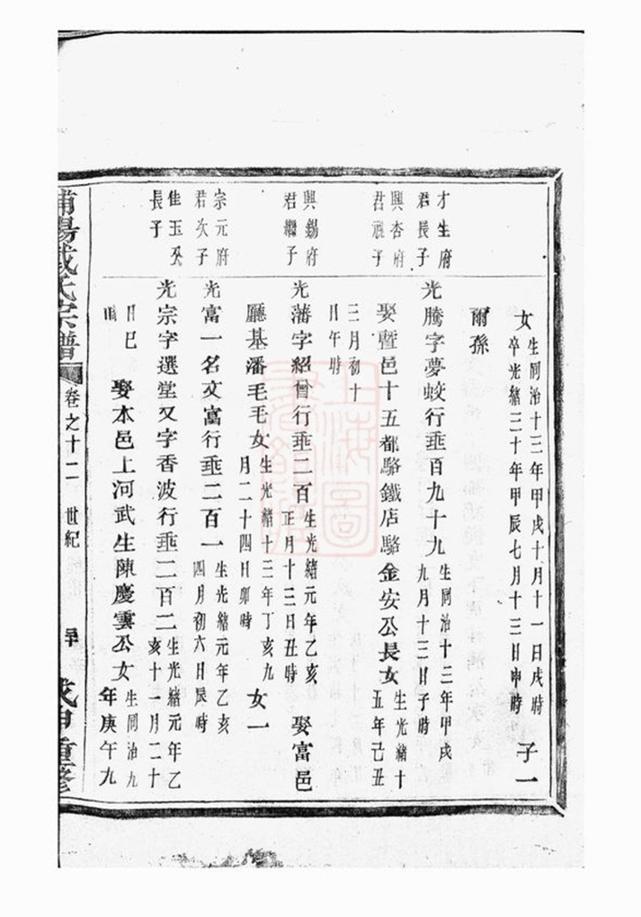 女
生同治十三年甲戌十月十一日戌時
卒光緒三十年甲辰七月十三日申時
子一
爾孫
才生府
君長子
光騰字夢蛟行垂百九十九
生同治十三年甲戌
九月十三日子時
興杏府
君
子
娶暨邑十五都駱鐵店駱金安公長女
生光緒十
五年己丑
三月初十
日午時
興錫府
君繼子
光藩字紹曾行垂二百
生光緒元年乙亥
正月十三日丑時
娶富邑
廳基潘毛毛女
生光緒十三年丁亥九
月二十四日卯時
女一
宗元府
君次子
光富一名文富行垂二百一
生光緒元年乙亥
四月初六日辰時
佳玉
長子
光宗字選堂又字香波行垂二百二
生光緒元年乙
亥十一月二十
日巳
時
娶本邑上河武生陳慶雲公女
生同治九
年庚午九
浦陽戚氏宗譜
卷之十二
世紀
戊申重修
上海圖
書館藏